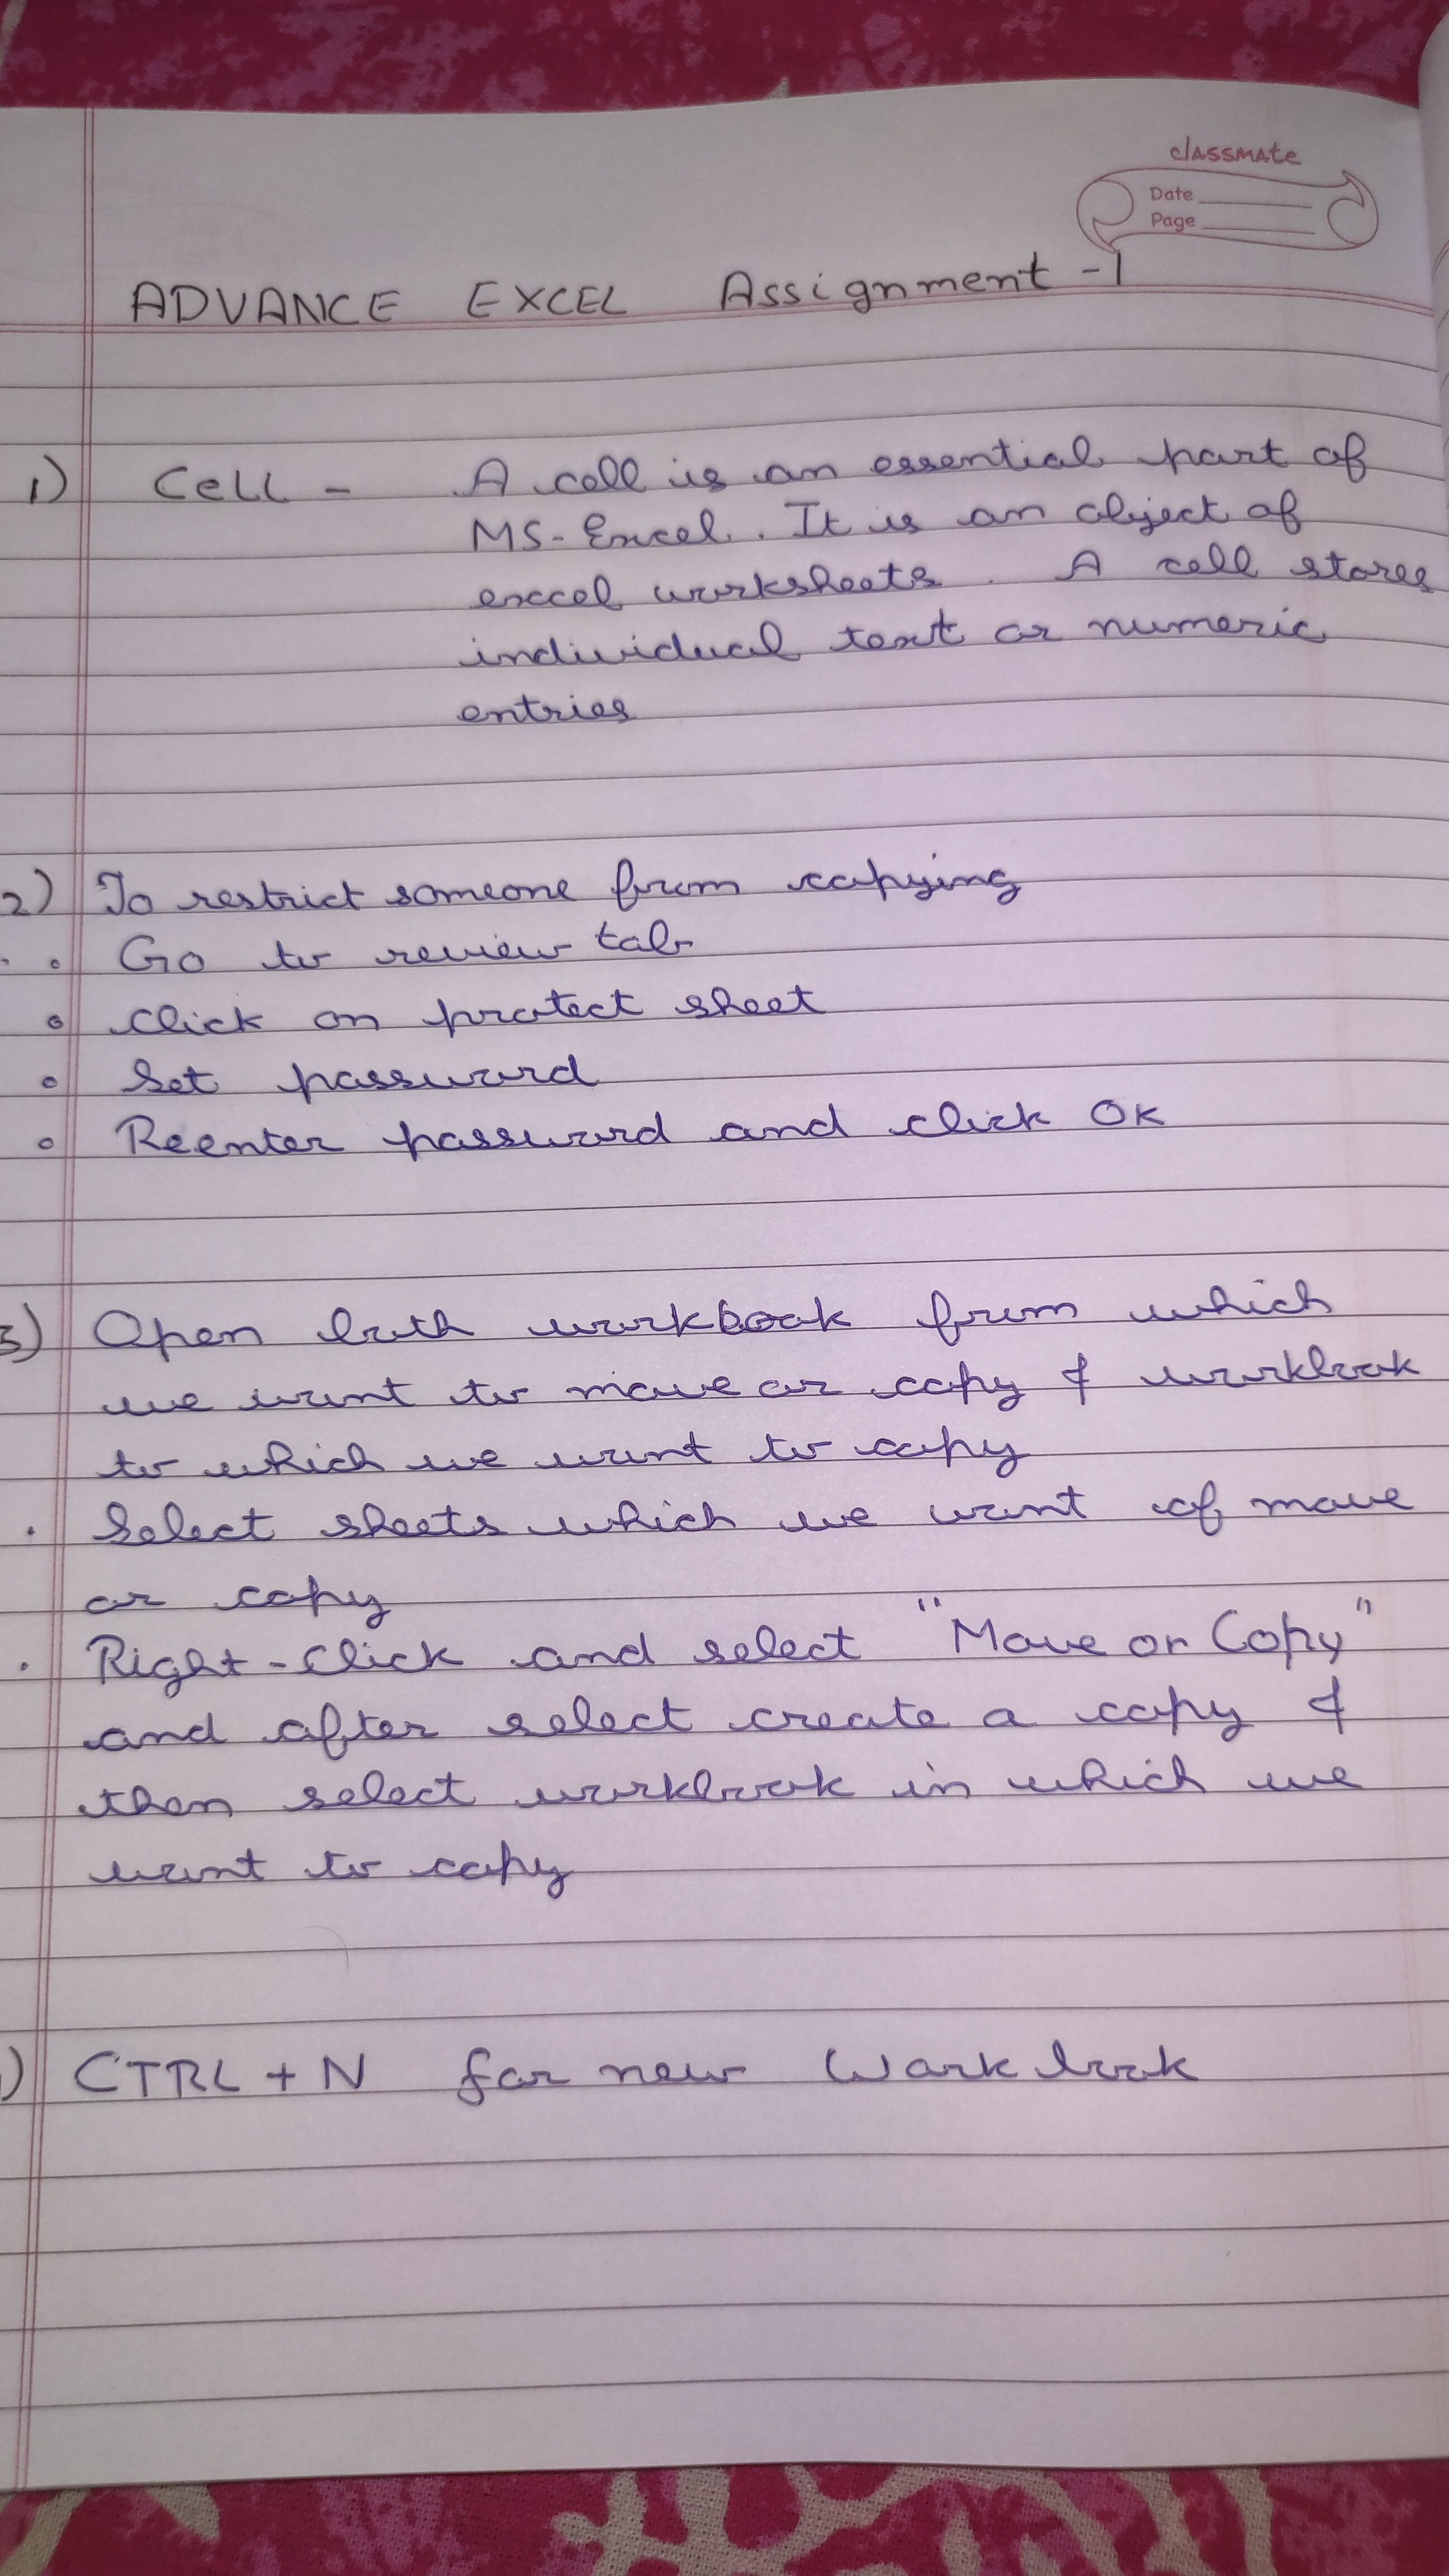 classmate
Date
Page
ADVANCE EXCEL Assignment -1
1) Cell - A cell is an essential part of
MS-Excel. It is an object of
excel worksheets. A cell stores
individual text or numeric
entries
2) To restrict someone from copying
Go to review tab
click on protect sheet
Set password
Reenter password and click OK
3) Open both workbook from which
we want to move or copy & workbook
to which we want to copy
Select sheets which we want of move
or copy
Right-Click and select "Move or Copy"
and after select create a copy &
then select workbook in which we
want to copy
) CTRL + N for new Workbook